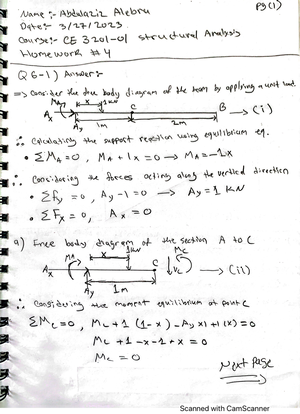 Name :- Abdulaziz Alebru
Pg (1)
Date:- 3/27/2023
Course:- CE 3201-01 structural Analysis
Homework #4
Q 6-1) Answer:-
=> Consider the free body diagram of the beam by applying a unit load
MA x 1kN
Ax A C B → (i)
Ay 1m 2m
∴ Calculating the support reaction using equilibrium eq.
• ΣMA = 0 , MA + 1x = 0 → MA = -1x
∴ Considering the forces acting along the vertical direction
• Σfy = 0, Ay - 1 = 0 → Ay = 1 kN
• ΣFx = 0, Ax = 0
a) Free body diagram of the section A to C
MA x 1kN Mc
Ax A C Vc → (ii)
Ay 1m
∴ Considering the moment equilibrium at point C
ΣMc = 0, Mc + 1 (1-x) - Ay x1 + 1(x) = 0
Mc + 1 - x - 1 + x = 0
Mc = 0
Next Page
Scanned with CamScanner